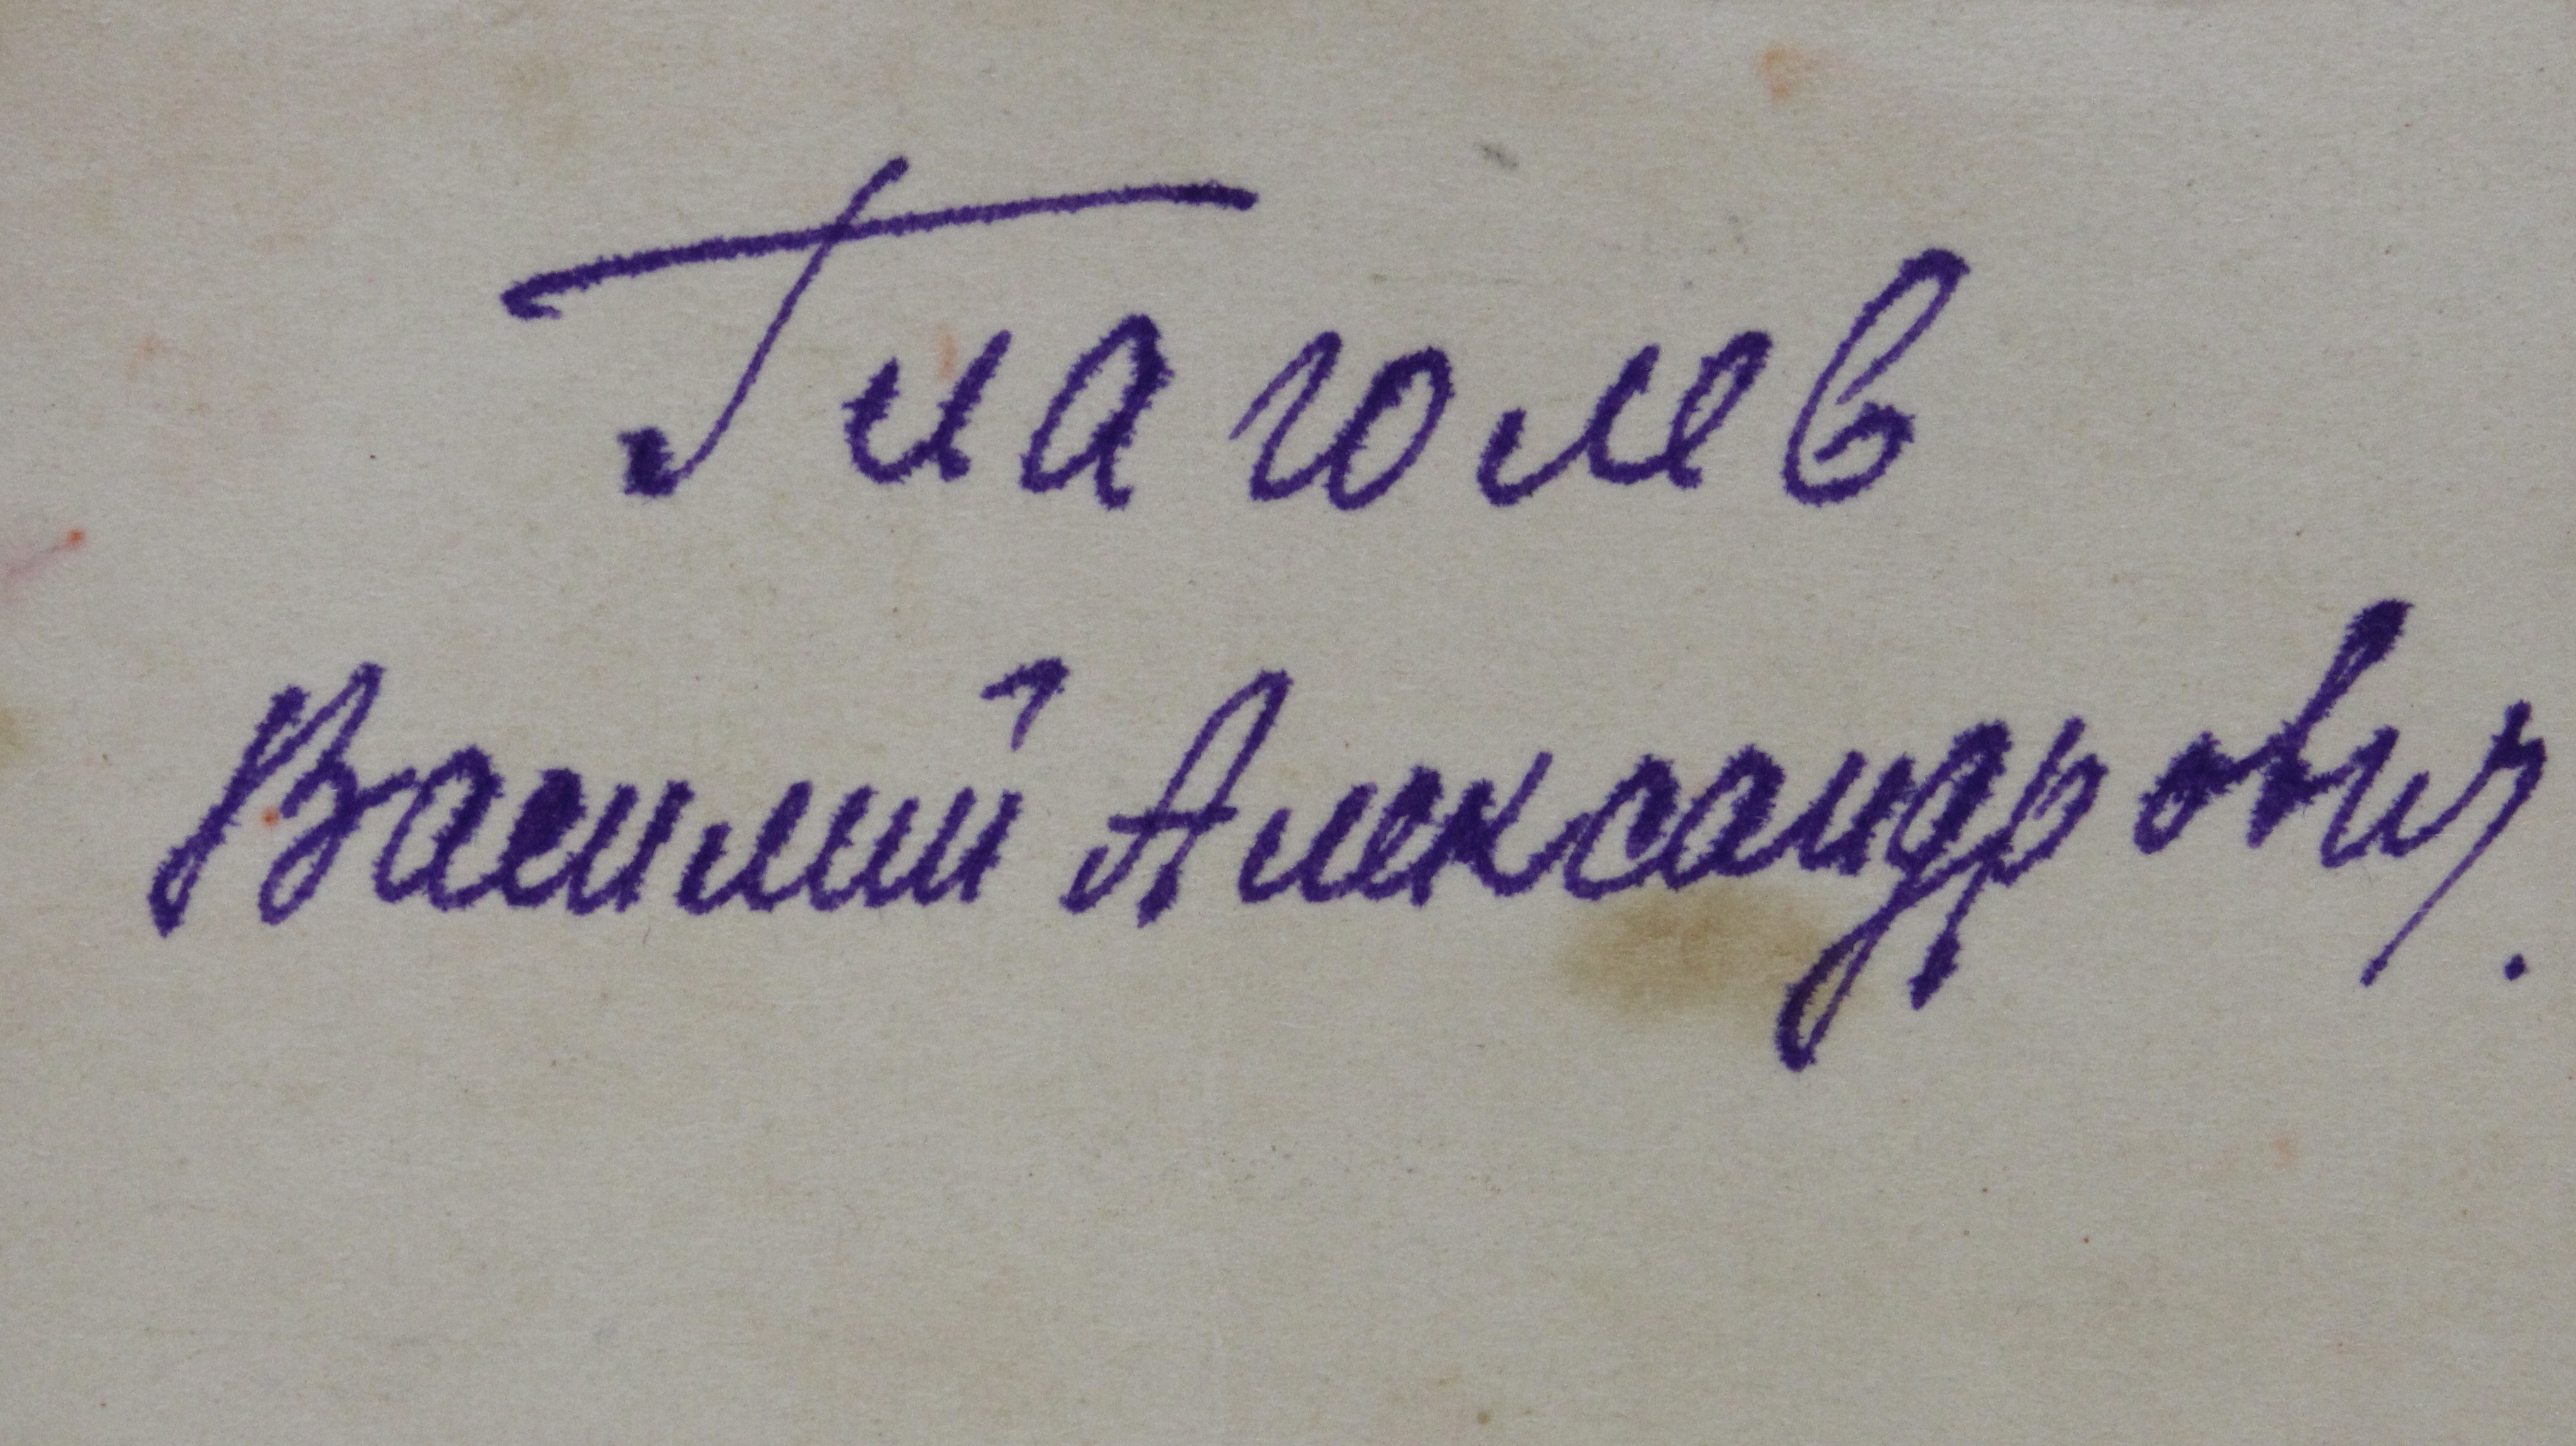 Глаголев
Василий Александрович.